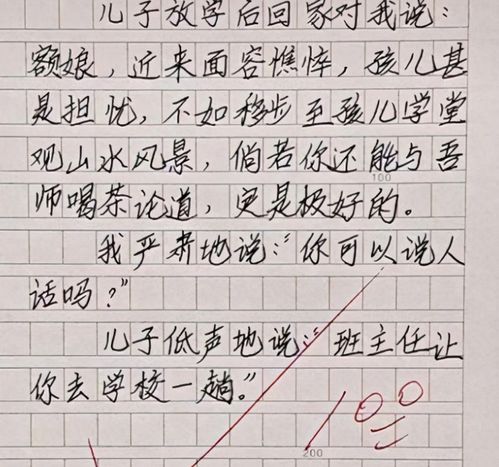 儿子放学后回家对我说：
额娘，近来面容憔悴，孩儿甚
是担忧，不如移步至孩儿学堂
观山水风景，倘若你还能与吾
师喝茶论道，定是极好的。
100
我严肃地说：“你可以说人
话吗？”
儿子低声地说：“班主任让
你去学校一趟。”
100
200